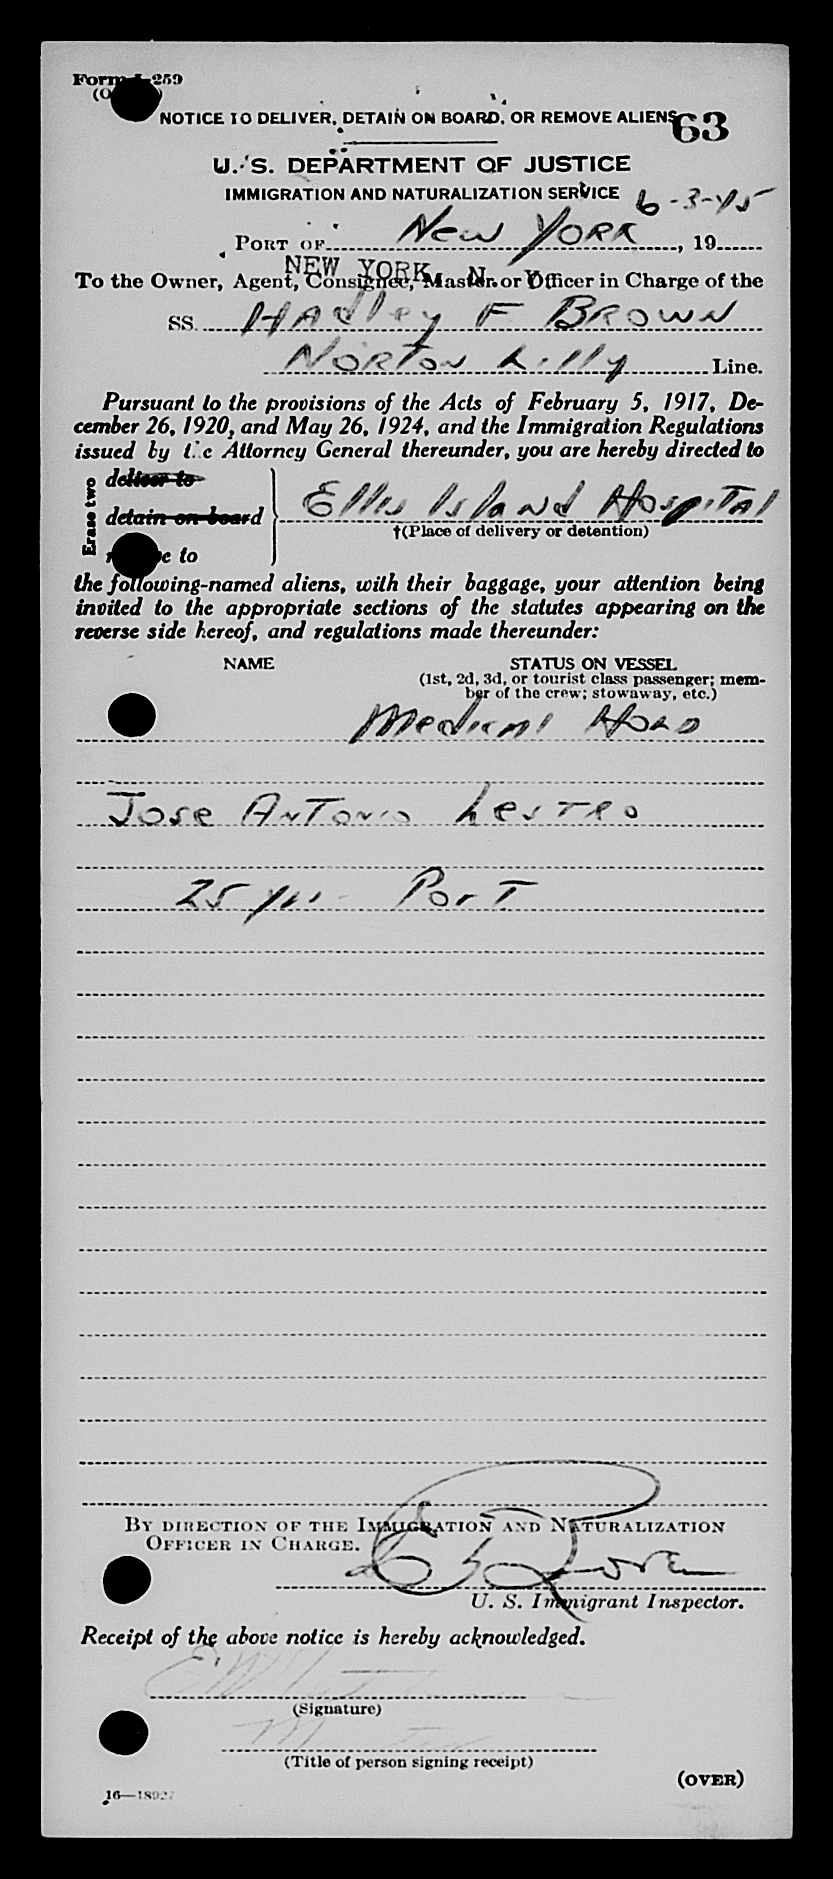 Form I-259
NOTICE TO DELIVER, DETAIN ON BOARD, OR REMOVE ALIENS
63
U. S. DEPARTMENT OF JUSTICE
IMMIGRATION AND NATURALIZATION SERVICE
6-3-45
PORT OF New YORK, 19
NEW YORK, N. Y.
To the Owner, Agent, Consignee, Master or Officer in Charge of the
SS. HAdley F BROWN
NORTON Lilly Line.
Pursuant to the provisions of the Acts of February 5, 1917, De-
cember 26, 1920, and May 26, 1924, and the Immigration Regulations
issued by the Attorney General thereunder, you are hereby directed to
Erase two
deliver to
detain on board
Ellis Island Hospital
†(Place of delivery or detention)
to
the following-named aliens, with their baggage, your attention being
invited to the appropriate sections of the statutes appearing on the
reverse side hereof, and regulations made thereunder:
NAME STATUS ON VESSEL
(1st, 2d, 3d, or tourist class passenger; mem-
ber of the crew; stowaway, etc.)
Medical HOLD
Jose ANTONIO Lestro
25 yrs - PorT
BY DIRECTION OF THE IMMIGRATION AND NATURALIZATION
OFFICER IN CHARGE.
U. S. Immigrant Inspector.
Receipt of the above notice is hereby acknowledged.
(Signature)
(Title of person signing receipt)
(OVER)
16—18927